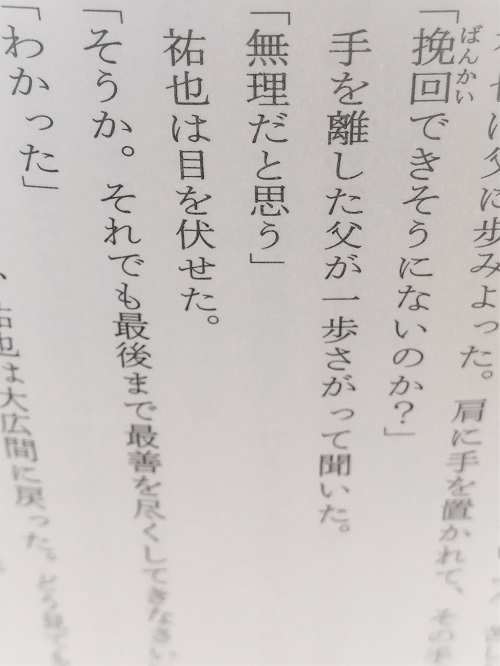 は父に歩みよった。肩に手を置かれて、その手
「挽回できそうにないのか？」
ばんかい
手を離した父が一歩さがって聞いた。
「無理だと思う」
祐也は目を伏せた。
「そうか。それでも最後まで最善を尽くしてきなさい
「わかった」
祐也は大広間に戻った。